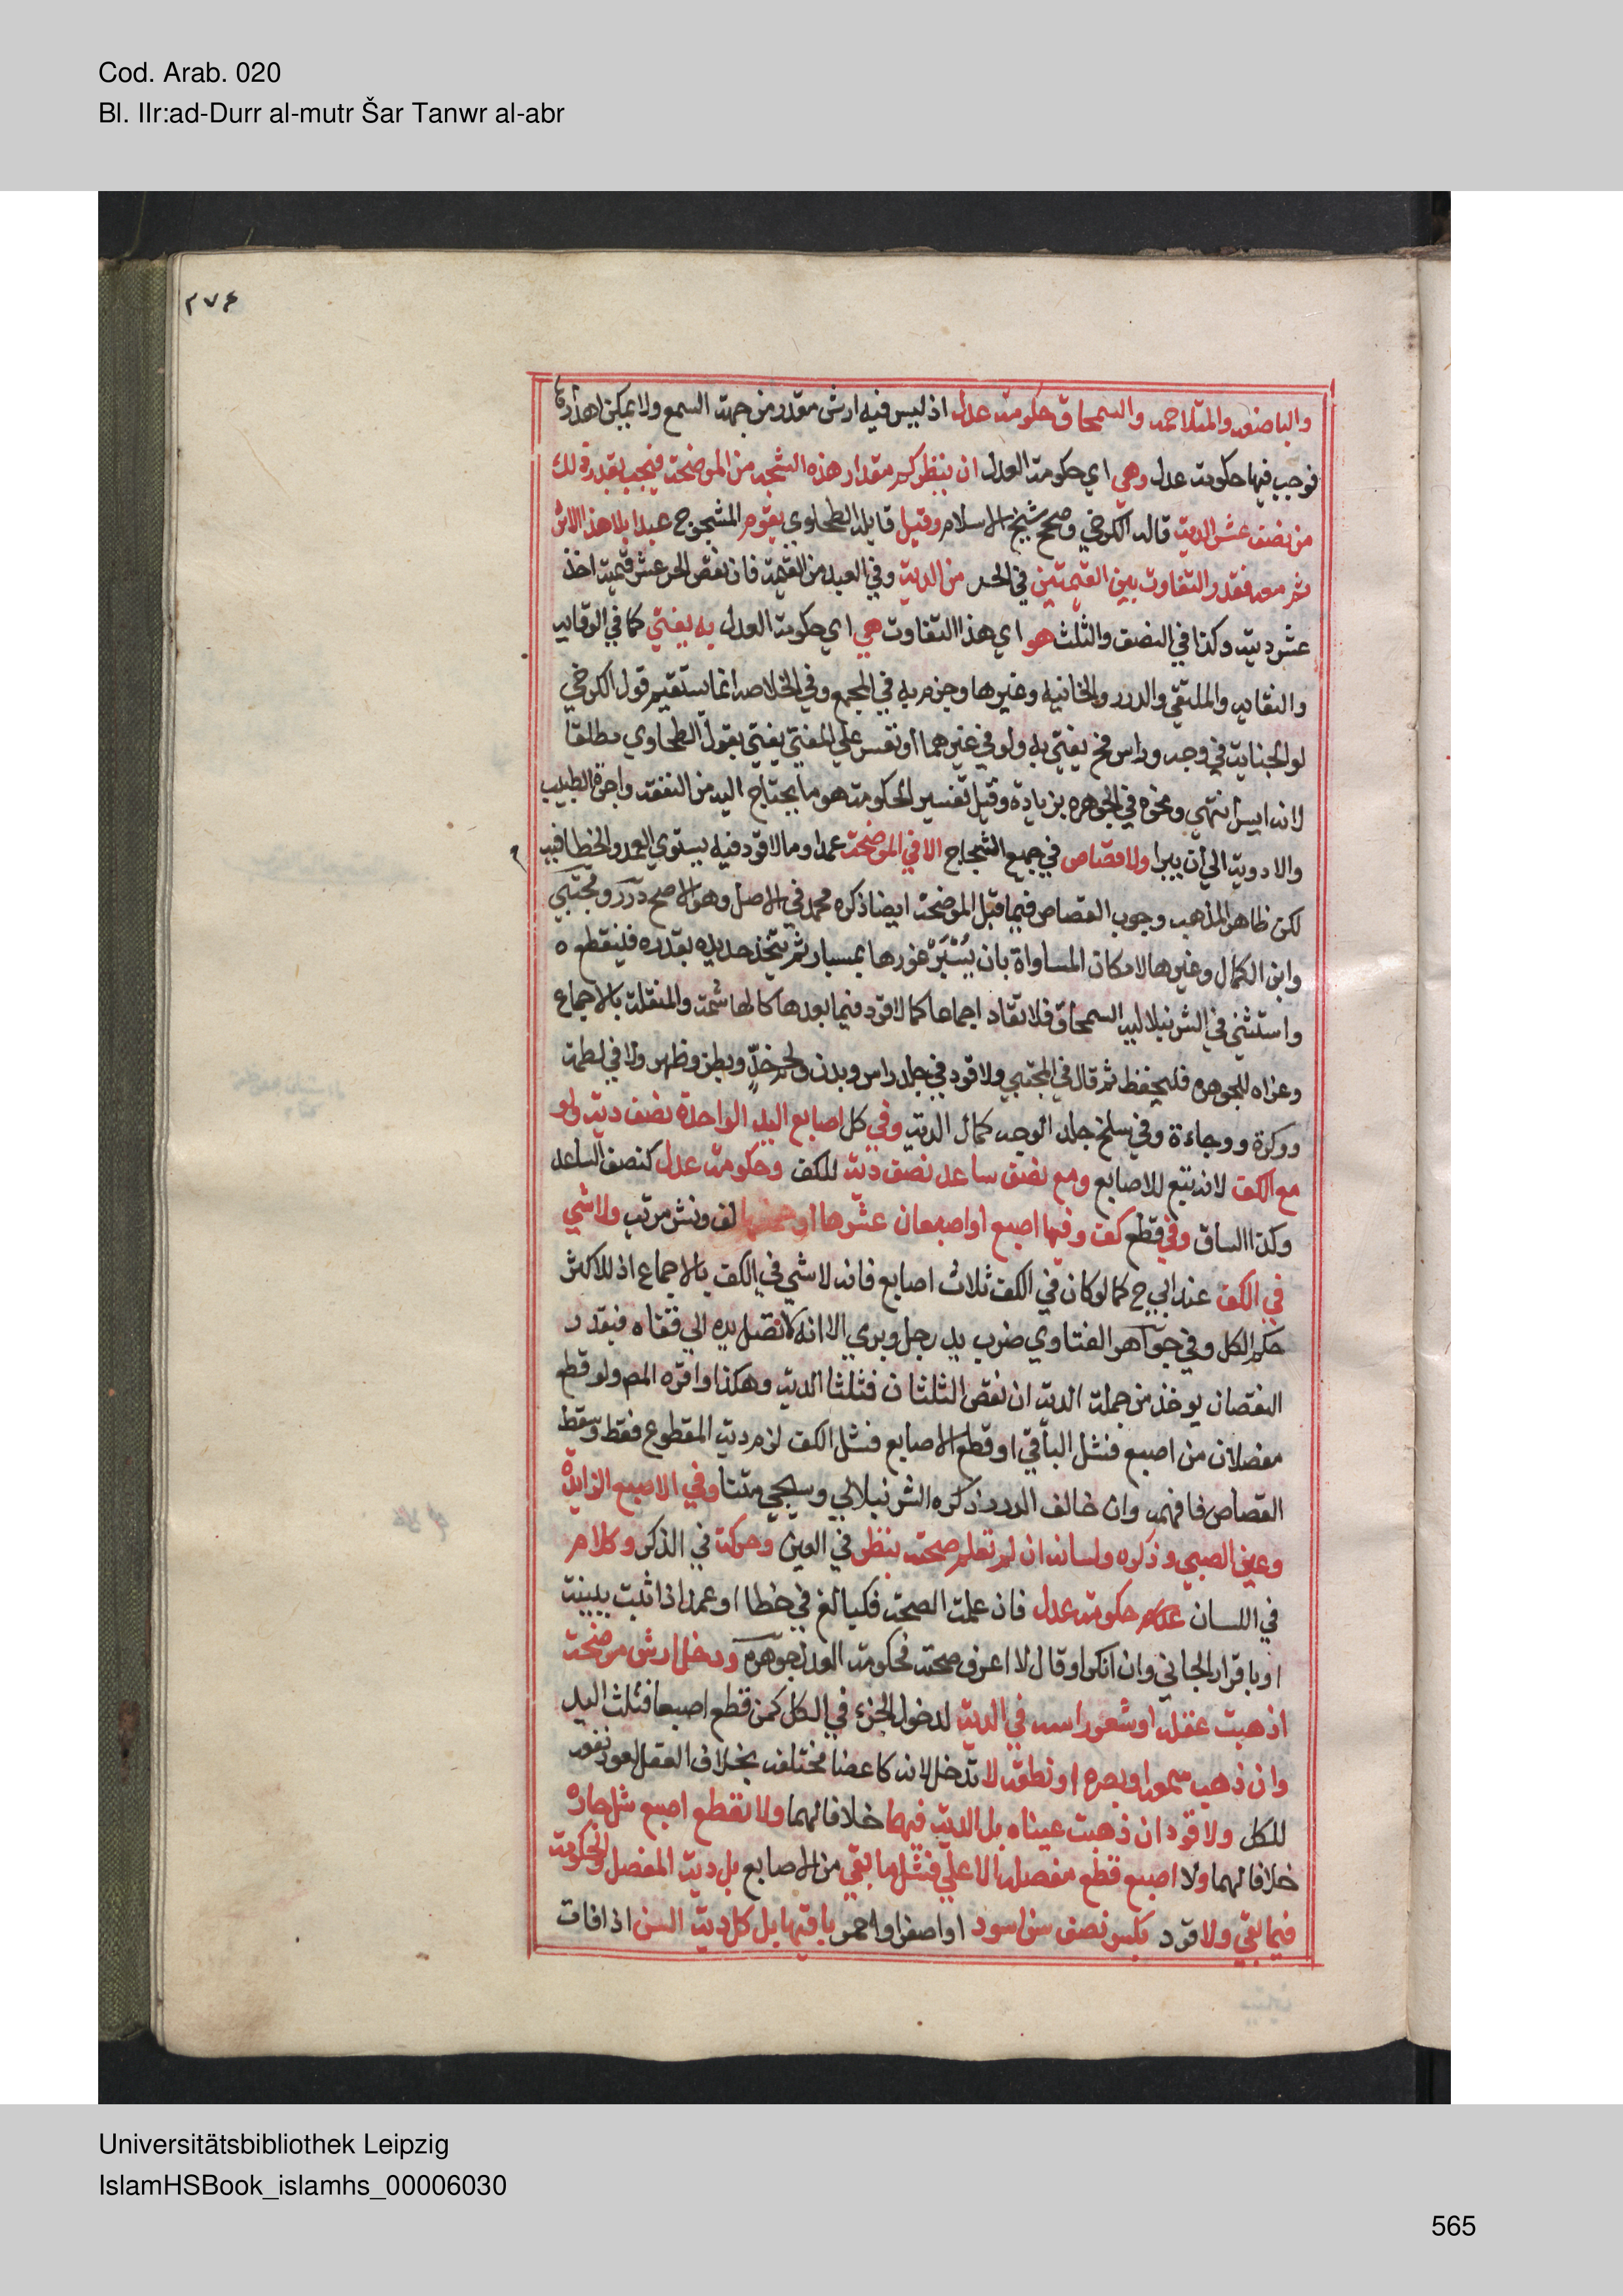 Cod. Arab. 020
Bl. IIr:ad-Durr al-mutr Šar Tanwr al-abr
٢٧۴
والباضعه والمتلاحمه والسمحاق حكومة عدل اذ ليس فيه ارش مقدر من جهة السمع ولا يمكن اهدارها
فوجب فيها حكومة عدل وهي اي حكومة العدل ان ينظر كم مقدار هذه الشجه من الموضحة فيجب بقدر ذلك
من نصف عشر الدية قاله الكرخي وصححه شيخ الاسلام وقيل قايله الطحاوي يقوم المشجوج عبدا بلا هذا الاثر
ثم معه فقدر التفاوت بين القيمتين في الحر من الدية وفي العبد من القيمة فان نقص الحر عشر قيمته اخذ
عشر ديته وكذا في النصف والثلث هو اي هذا التفاوت هي اي حكومة العدل به يفتي كما في الوقايه
والنقايه والملتقي والدرر والخانيه وغيرها وجزم به في المجمع وفي الخلاصه انما يستقيم قول الكرخي
لو الجناية في وجه وراس فح يفتي به ولو في غيرهما او تعسر علي المفتي يفتي بقول الطحاوي مطلقا
لانه ايسر انتهي ونحوه في الجوهره بزيادة وقيل تفسير الحكومة هو ما يحتاج اليه من النفقة واجرة الطبيب
والادوية الي أن يبرا ولا قصاص في جميع الشجاج الا في الموضحة عمدا وما لا قود فيه يستوي العمد والخطا فيه
لكن ظاهر المذهب وجوب القصاص فيما قبل الموضحة ايضا ذكره محمد في الاصل وهو الاصح درر ومجتبي
وابن الكمال وغيرها لامكان المساواة بان يُسْبَرْ غورها بمسبار ثم يتخذ حديده بقدره فينقطع ه
واستثني في الشرنبلاليه السمحاق فلا تقاد اجماعا كما لا قود فيما بعدها كالهاشمة والمنقلة بالاجماع
وعزاه للجوهره فليحفظ ثم قال في المجتبي ولا قود في جلد راس وبدن ولحم خدٍّ وبطن وظهر ولا في لطمة
ووكزة ووجاءة وفي سلخ جلد الوجه كمال الدية وفي كل اصابع اليد الواحدة نصف دية ولو
مع الكف لانه تبع للاصابع ومع نصف ساعد نصف دية للكف وحكومة عدل كنصف الساعد
وكذا الساق وفي قطع كف وفيها اصبع او اصبعان عشرها او خمسها لف ونشر مرتب ولا شي
في الكف عند ابي ح كما لو كان في الكف ثلاث اصابع فانه لا شي في الكف بالاجماع اذ للاكثر
حكم الكل وفي جواهر الفتاوي ضرب يد رجل وبري الا انه لا تصل يده الي قفاه فبقدر
النقصان يوخذ من جملة الدية ان نقص الثلثان فثلثا الدية وهكذا واقره المص ولو قطع
مفصلان من اصبع فشل الباقي او قطع الاصابع فشل الكف لزم دية المقطوع فقط وسقط
القصاص فافهمه وان خالف الدرر ذكره الشرنبلالي وسيجي متنا وفي الاصبع الزايدة
وعين الصبي وذكره ولسانه ان لم تعلم صحته بنظر في العين وحركة في الذكر وكلام
في اللسان حكومة عدل فان علمت الصحة فكبالغ في خطا او عمد اذا ثبت ببينة
او باقرار الجاني وان انكر او قال لا اعرف صحته فحكومة العدل جوهره ودخل ارش موضحة
اذهبت عقله او شعر راسه في الدية لدخول الجزء في الكل كمن قطع اصبعا فشلت اليد
وان ذهب سمعه او بصره او نطقه لا تدخل لانه كاعضا مختلفه بخلاف العقل لعود نفعه
للكل ولا قود ان ذهبت عيناه بل الدية فيهما خلافا لهما ولا بقطع اصبع شل جاره
خلافا لهما ولا اصبع قطع مفصله الاعلي فشل ما بقي من الاصابع بل دية المفصل والحكومة
فيما بقي ولا قود بكسر نصف سن اسود او اصفر او احمر باقيها بل كل دية السن اذا فات
Universitätsbibliothek Leipzig
IslamHSBook_islamhs_00006030
565